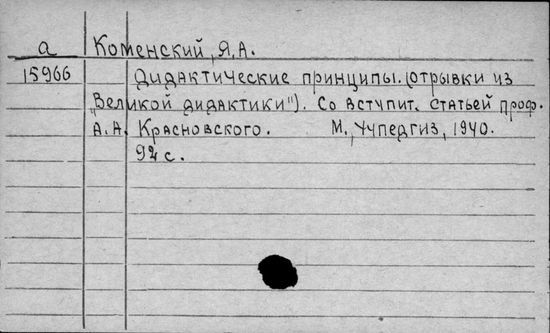 а Коменский, Я.А.
15966 Дидактические принципы. (отрывки из
"Великой дидактики"). Со вступит. статьей проф.
А.А. Красновского. М., Учпедгиз, 1940.
92 с.